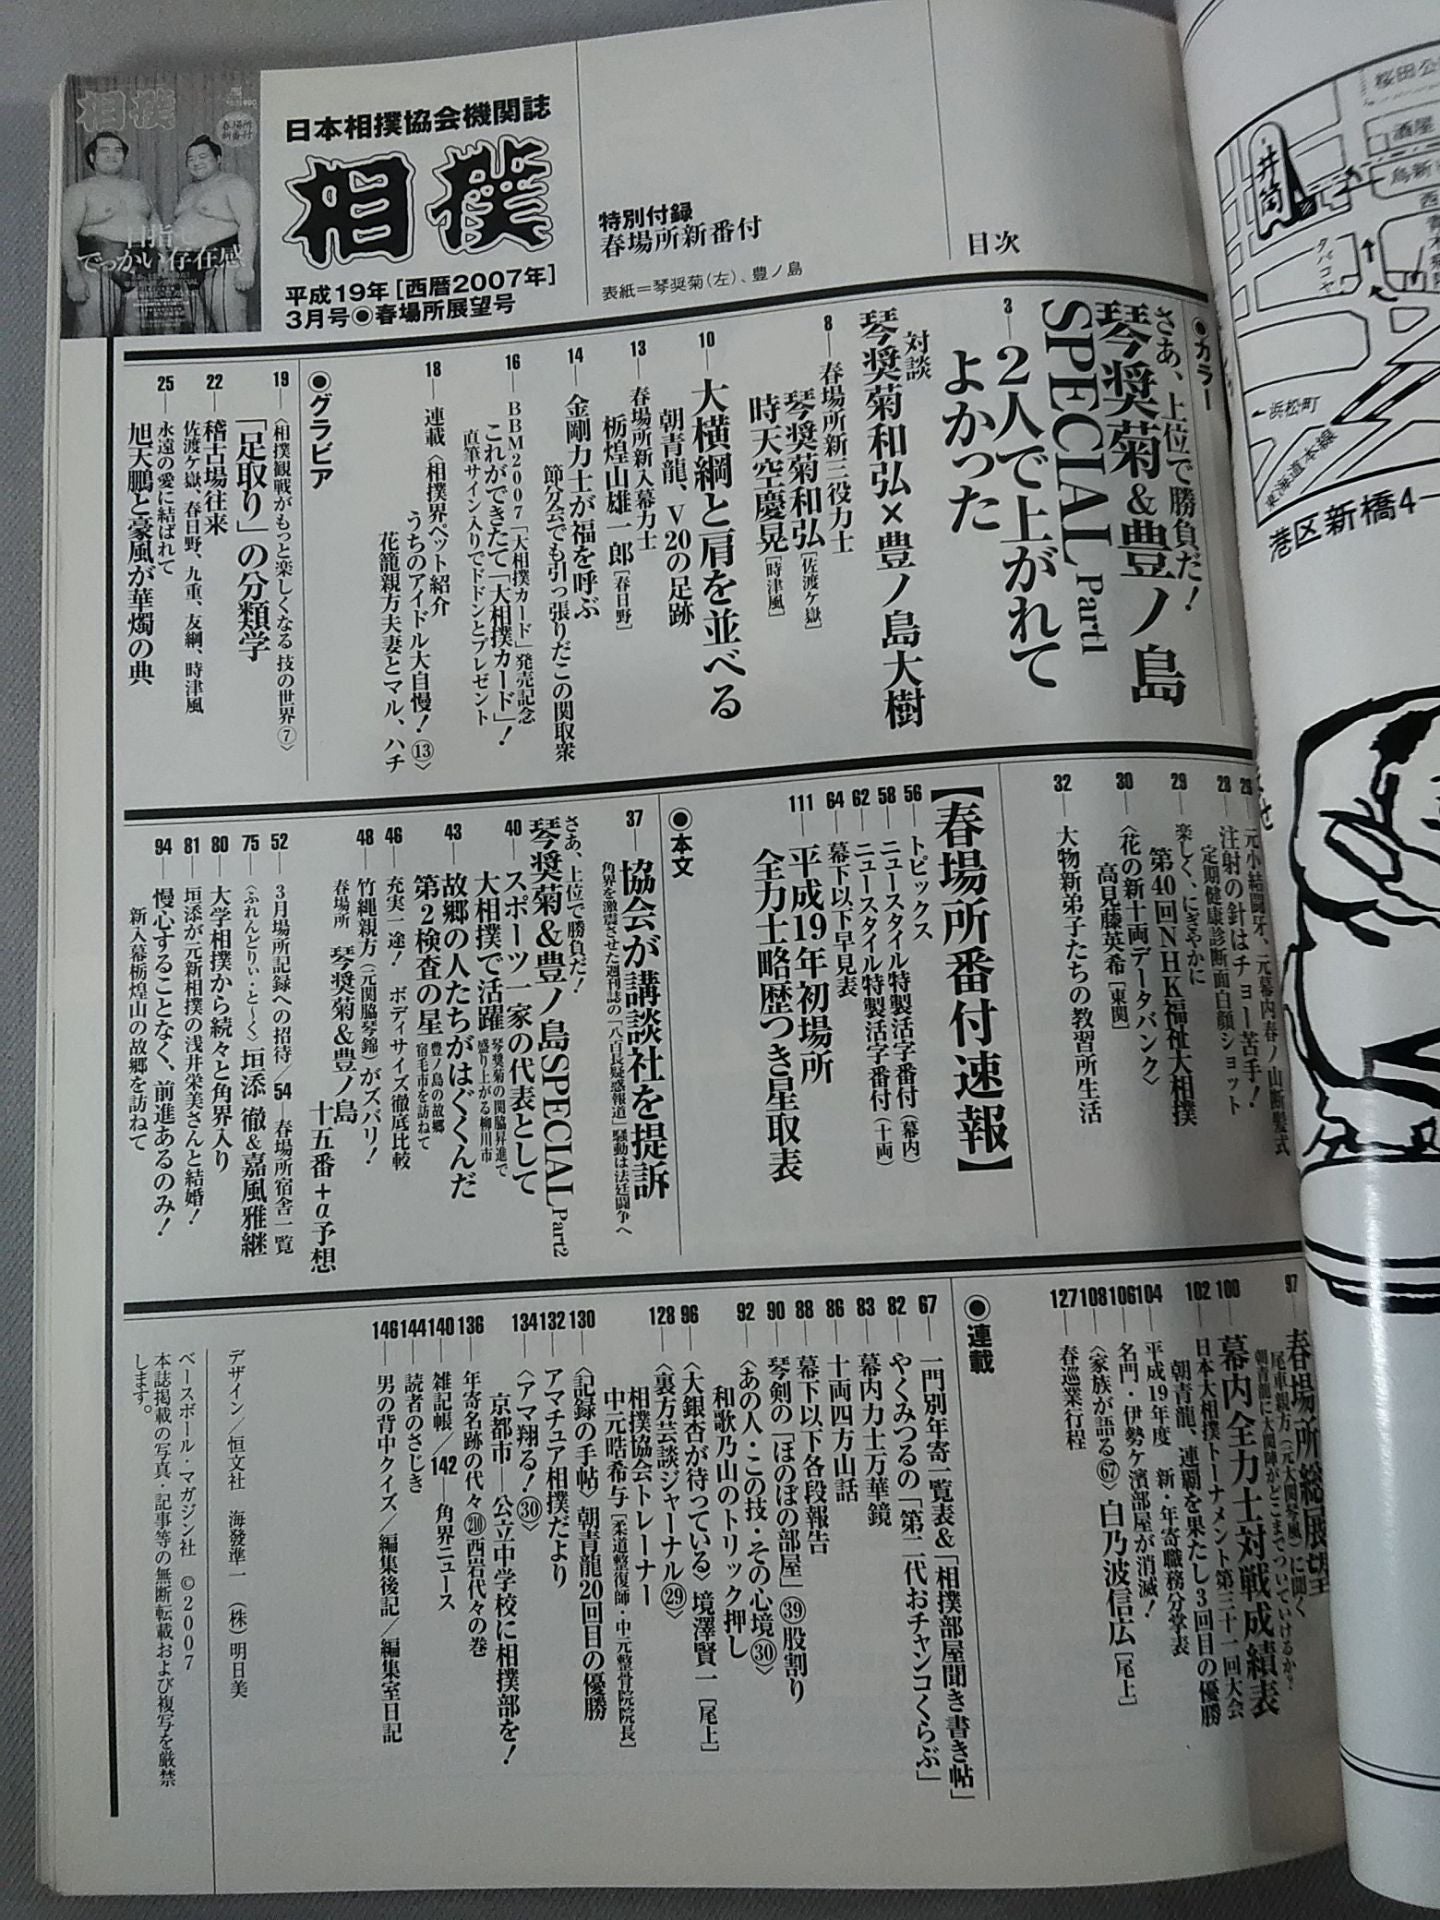 日本相撲協会機関誌
相撲
平成19年[西暦2007年]
3月号●春場所展望号
特別付録
春場所新番付
表紙＝琴奨菊(左)、豊ノ島
目次
相撲
でっかい存在感
●カラー
さあ、上位で勝負だ!
琴奨菊&豊ノ島
SPECIAL Part1
3—2人で上がれて
よかった
対談
琴奨菊和弘×豊ノ島大樹
8—春場所新三役力士
琴奨菊和弘[佐渡ケ嶽]
時天空慶晃[時津風]
10—大横綱と肩を並べる
朝青龍、V20の足跡
13—春場所新入幕力士
栃煌山雄一郎[春日野]
14—金剛力士が福を呼ぶ
節分会でも引っ張りだこの関取衆
16—BBM2007「大相撲カード」発売記念
これができたて「大相撲カード」!
直筆サイン入りでドドンとプレゼント
18—連載〈相撲界ペット紹介
うちのアイドル大自慢!⑬〉
花籠親方夫妻とマル、ハチ
●グラビア
19—〈相撲観戦がもっと楽しくなる 技の世界⑦〉
「足取り」の分類学
22—稽古場往来
佐渡ケ嶽、春日野、九重、友綱、時津風
25—永遠の愛に結ばれて
旭天鵬と豪風が華燭の典
元小結闘牙、元幕内春ノ山断髪式
28—注射の針はチョー苦手!
定期健康診断面白顔ショット
29—楽しく、にぎやかに
第40回NHK福祉大相撲
30—〈花の新十両データバンク〉
高見藤英希[東関]
32—大物新弟子たちの教習所生活
【春場所番付速報】
56—トピックス
58—ニュースタイル特製活字番付(幕内)
62—ニュースタイル特製活字番付(十両)
64—幕下以下早見表
111—平成19年初場所
全力士略歴つき星取表
●本文
37—協会が講談社を提訴
角界を激震させた週刊誌の「八百長疑惑報道」騒動は法廷闘争へ
さあ、上位で勝負だ!
琴奨菊&豊ノ島SPECIAL Part2
40—スポーツ一家の代表として
大相撲で活躍 琴奨菊の関脇昇進で
盛り上がる柳川市
43—故郷の人たちがはぐくんだ
第2検査の星 豊ノ島の故郷
宿毛市を訪ねて
46—充実一途! ボディサイズ徹底比較
48—竹縄親方(元関脇琴錦)がズバリ!
春場所 琴奨菊&豊ノ島
十五番+α予想
52—3月場所記録への招待/54—春場所宿舎一覧
75—〈ふれんどりぃ・と〜く〉垣添 徹&嘉風雅継
80—大学相撲から続々と角界入り
81—垣添が元新相撲の浅井栄美さんと結婚!
94—慢心することなく、前進あるのみ!
新入幕栃煌山の故郷を訪ねて
97—春場所総展望
尾車親方(元大関琴風)に聞く
朝青龍に大関陣がどこまでついていけるか?
100—幕内全力士対戦成績表
102—日本大相撲トーナメント第三十一回大会
朝青龍、連覇を果たし3回目の優勝
104—平成19年度 新・年寄職務分掌表
106—名門・伊勢ケ濱部屋が消滅!
108—〈家族が語る67〉白乃波信広[尾上]
127—春巡業行程
●連載
67—一門別年寄一覧表&「相撲部屋聞き書き帖」
82—やくみつるの「第二代おチャンコくらぶ」
83—幕内力士万華鏡
86—十両四方山話
88—幕下以下各段報告
90—琴剣の「ほのぼの部屋」㊴股割り
92—〈あの人・この技・その心境㉚〉
和歌乃山のトリック押し
96—〈大銀杏が待っている〉境澤賢一[尾上]
128—〈裏方芸談ジャーナル㉙〉
相撲協会トレーナー
中元皓希与[柔道整復師・中元整骨院院長]
130—〈記録の手帖〉朝青龍20回目の優勝
132—アマチュア相撲だより
134—〈アマ翔る!㉚〉
京都市—公立中学校に相撲部を!
136—年寄名跡の代々210西岩代々の巻
140—雑記帳/142—角界ニュース
144—読者のさじき
146—男の背中クイズ/編集後記/編集室日記
デザイン/恒文社 海發準一 (株)明日美
ベースボール・マガジン社 ©2007
本誌掲載の写真・記事等の無断転載および複写を厳禁
します。
井筒
酒屋
タバコヤ
←浜松町
東海道本線
港区新橋4—